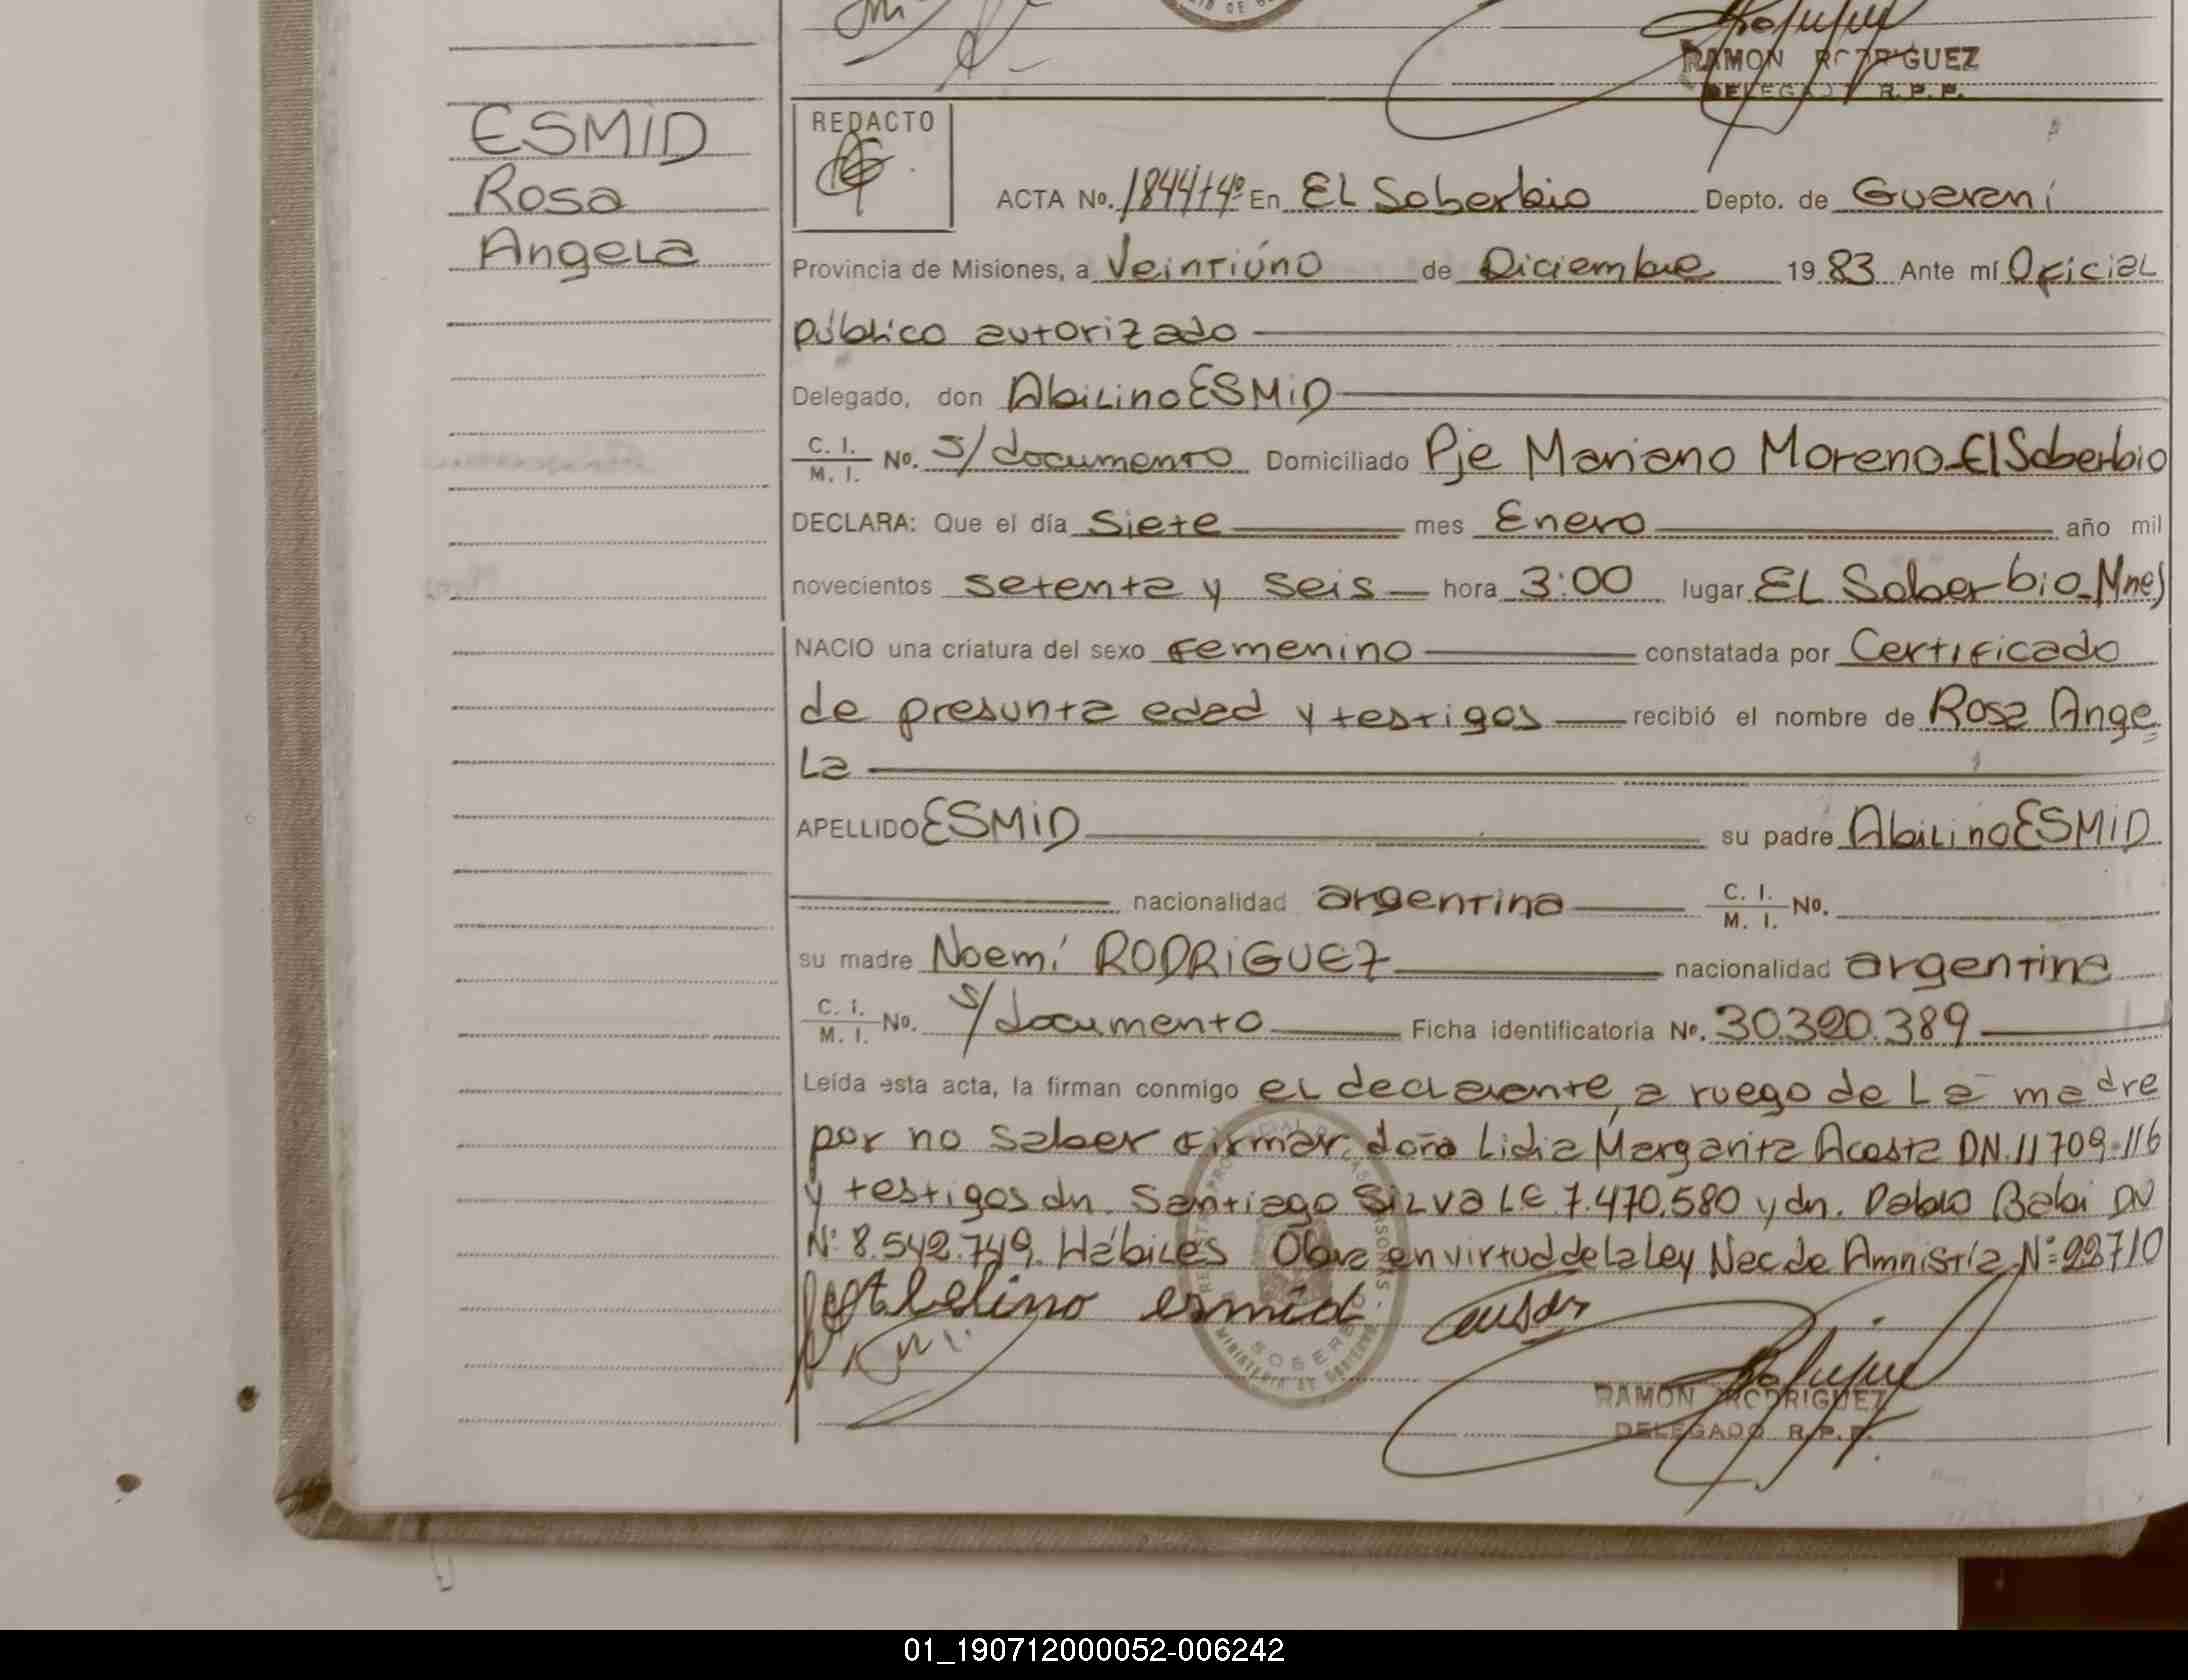 RAMON RODRIGUEZ
DELEGADO R. P. P.
ESMID
Rosa
Angela
REDACTO
ACTA No. 1844 t 4º En EL Soberbio Depto. de Guaraní
Provincia de Misiones, a Veintiúno de Diciembre 1983 Ante mí Oficial
público autorizado
Delegado, don Abilino ESMiD
C. I. / M. I. No. s/documento Domiciliado Pje Mariano Moreno-El Soberbio
DECLARA: Que el día Siete mes Enero año mil
novecientos setenta y seis hora 3:00 lugar EL Soberbio-Mnes
NACIO una criatura del sexo femenino constatada por Certificado
de presunta edad y testigos recibió el nombre de Rosa Ange
La
APELLIDO ESMiD su padre Abilino ESMiD
nacionalidad argentina C. I. / M. I. No.
su madre Noemí RODRiGUEZ nacionalidad argentina
C. I. / M. I. No. s/documento Ficha identificatoria No. 30.320.389
Leída esta acta, la firman conmigo el declarante, a ruego de La madre
por no saber firmar, doña Lidia Margarita Acosta DN. 11709.116
y testigos dn. Santiago SiLva LE 7.470.580 y dn. Pablo Balai DN
Nº 8.542.749. Hábiles Obra en virtud de la Ley Nac de Amnistía Nº 22710
Abelino esmid
RAMON RODRIGUEZ
DELEGADO R. P. P.
01_190712000052-006242